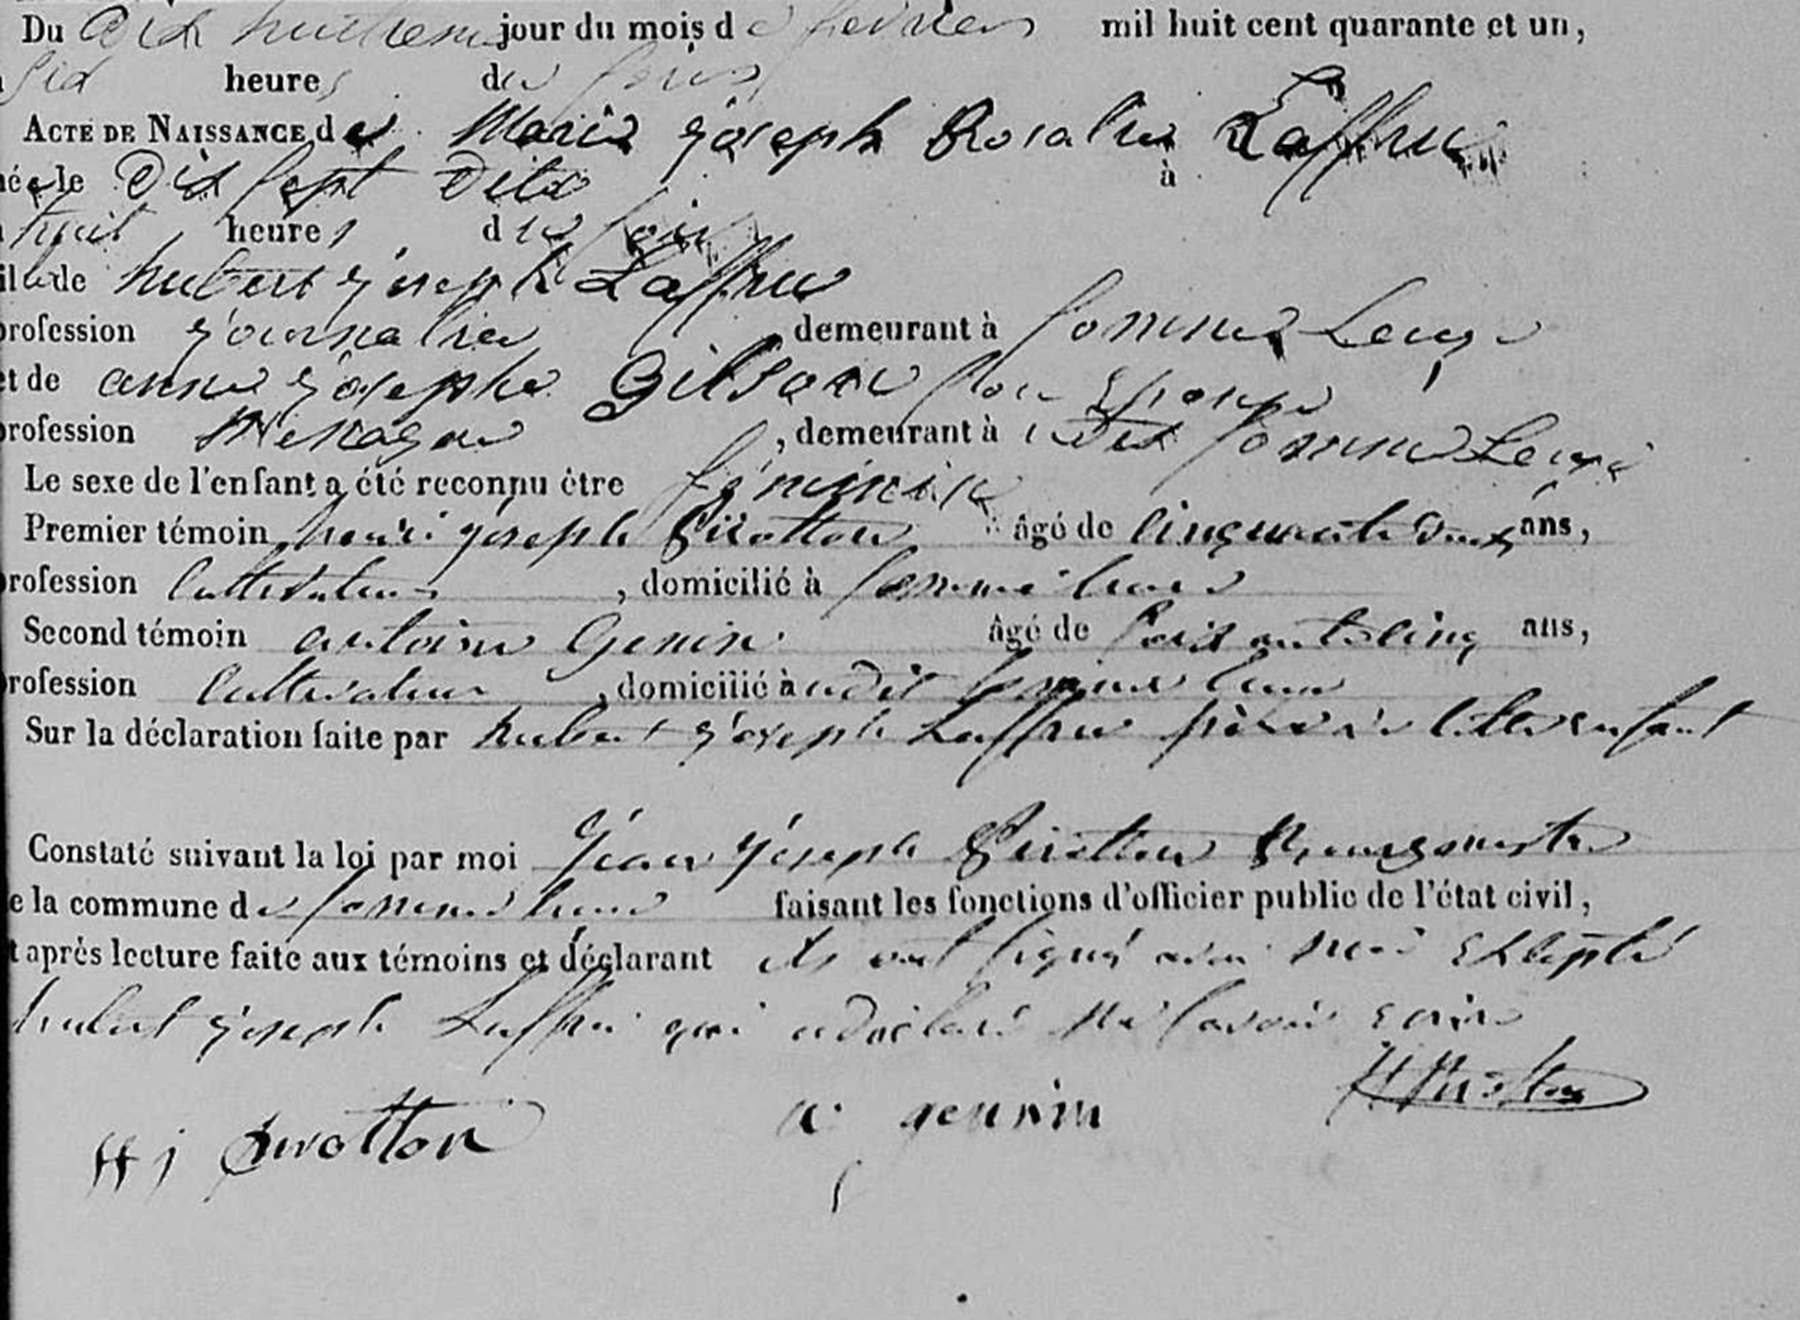 Du Dix huitieme jour du mois de fevrier mil huit cent quarante et un,
Six heures du soir
ACTE DE NAISSANCE de Marie joseph Rosalie Laffru
née le Dix sept Dito à
huit heures du soir
fille de hubert joseph Laffru
profession journalier demeurant à Somme Leuze
et de anne josephe Gilson son Epouse
profession Menagere, demeurant à udit Somme Leuze
Le sexe de l'enfant a été reconnu être féminin
Premier témoin henri joseph Pirotton âgé de Cinquante Deux ans,
profession Cultivateur, domicilié à Somme leuze
Second témoin antoine Genin âgé de Soixante cinq ans,
profession Cultivateur, domicilié à udit Somme leuze
Sur la déclaration faite par hubert joseph Laffru père de enfant
Constaté suivant la loi par moi jean joseph Pirotton Bourgmestre
de la commune de Somme leuze faisant les fonctions d'officier public de l'état civil,
et après lecture faite aux témoins et déclarant ils ont signé avec moi Excepté
hubert joseph Laffru qui a declaré ne savoir Ecrire
H j Pirotton a gennin